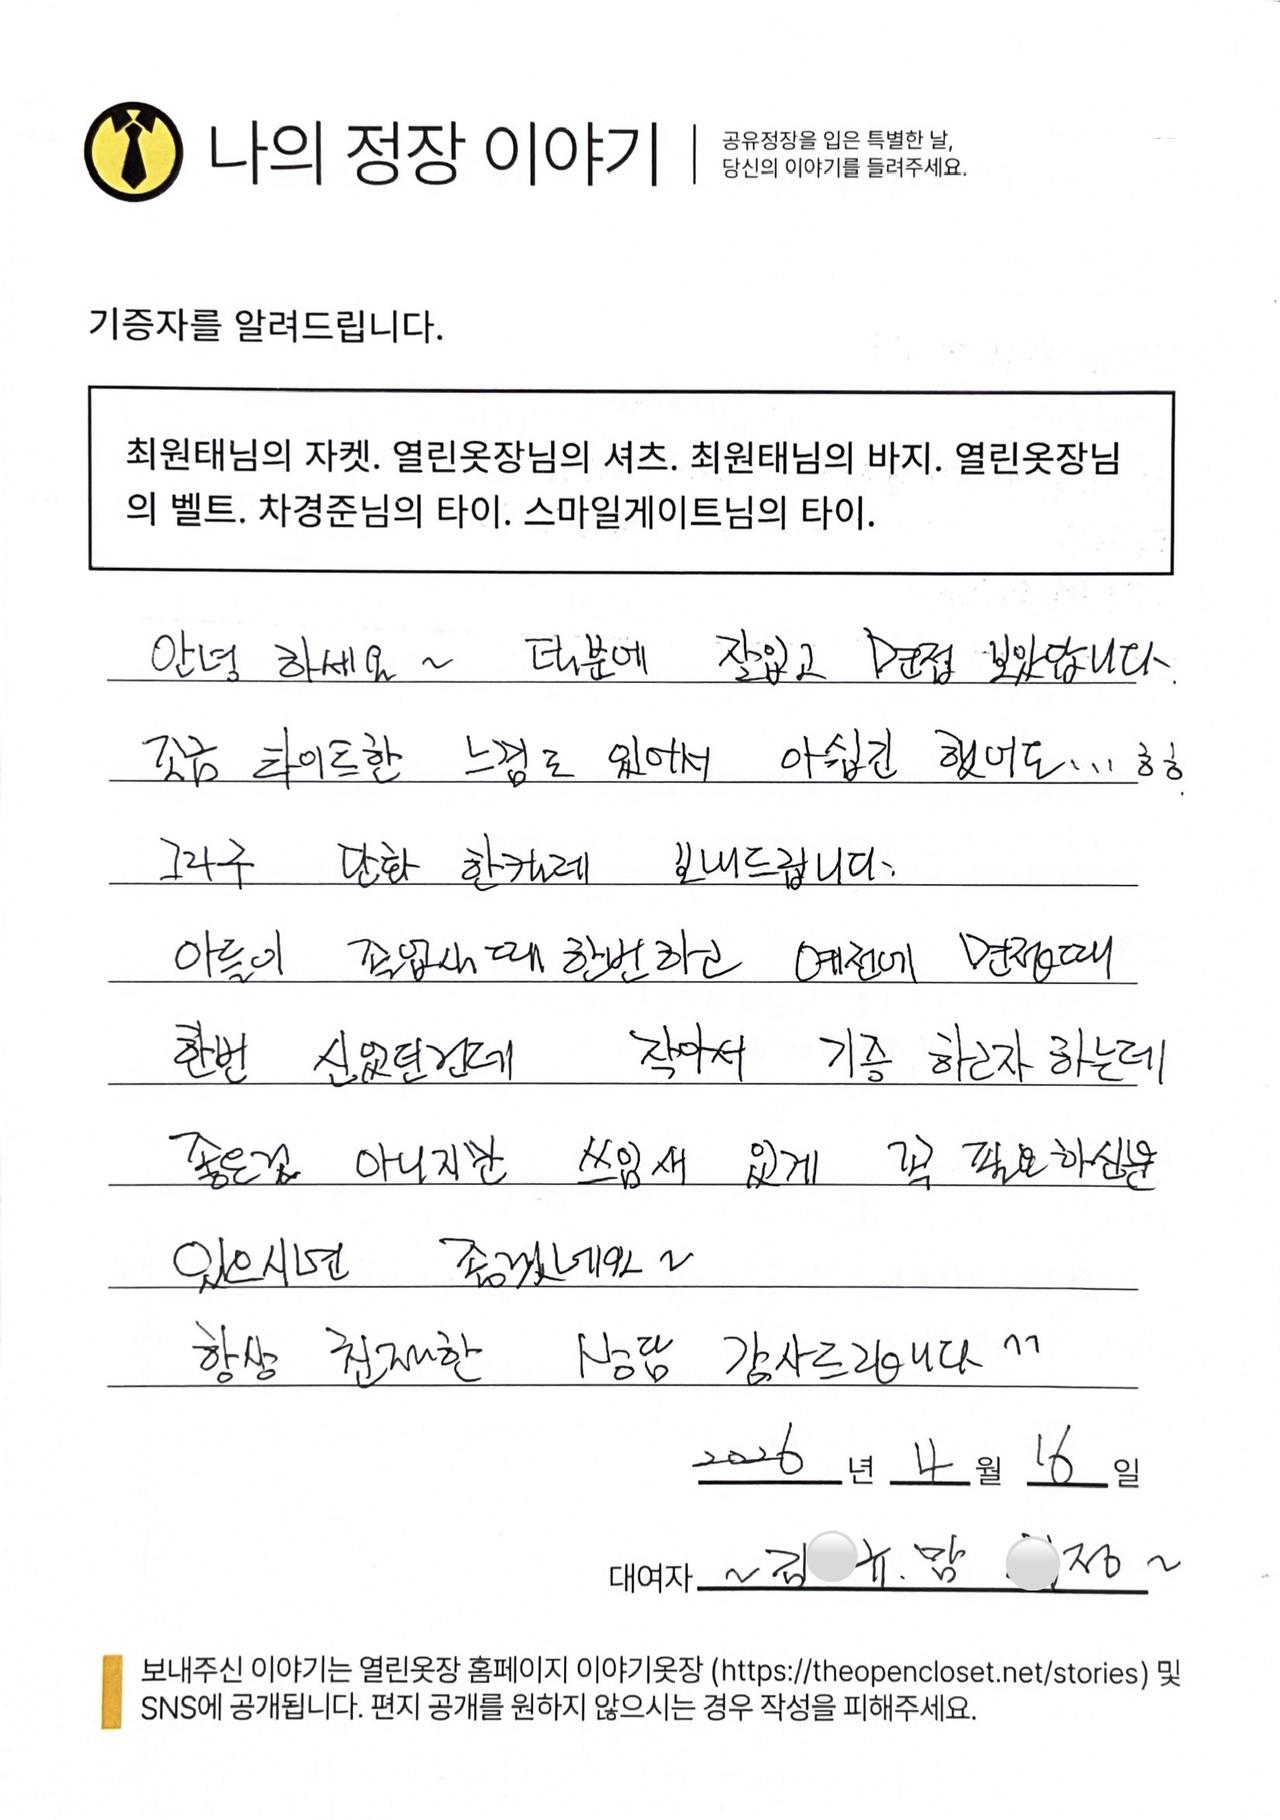 나의 정장 이야기
공유정장을 입은 특별한 날,
당신의 이야기를 들려주세요.
기증자를 알려드립니다.
최원태님의 자켓. 열린옷장님의 셔츠. 최원태님의 바지. 열린옷장님
의 벨트. 차경준님의 타이. 스마일게이트님의 타이.
안녕 하세요 ~ 덕분에 잘입고 면접 보았답니다.
조금 타이트한 느낌도 있어서 아쉽긴 했어도... ㅎㅎ
그라구 단화 한켜레 보내드립니다.
아들이 졸업사때 한번하고 예전에 면접때
한번 신었던건데 작아서 기증 하고자 하는데
좋은건 아니지만 쓰임새 있게 꼭 필요하신분
있으시면 좋겠네요 ~
항상 친절한 상담 감사드립니다 ^^
2026 년 4 월 16 일
대여자 ~ 김 뉴. 맘 정 ~
보내주신 이야기는 열린옷장 홈페이지 이야기옷장 (https://theopencloset.net/stories) 및
SNS에 공개됩니다. 편지 공개를 원하지 않으시는 경우 작성을 피해주세요.